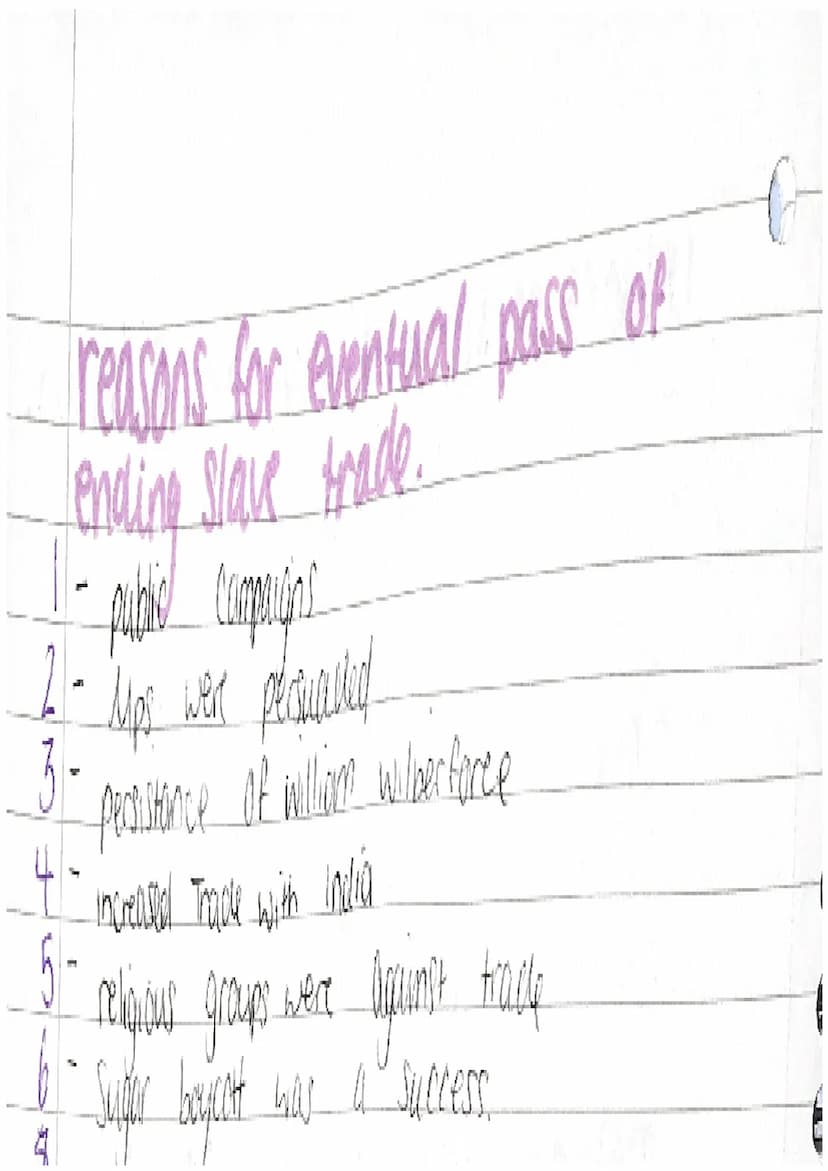 reasons for eventual pass of
ending slave trade.
1 - public campaigns
2 - Mps were persuaded
3 - persistance of william wilberforce
4 - increased Trade with India
5 - religious groups were against trade
6 - Sugar boycott was a success.